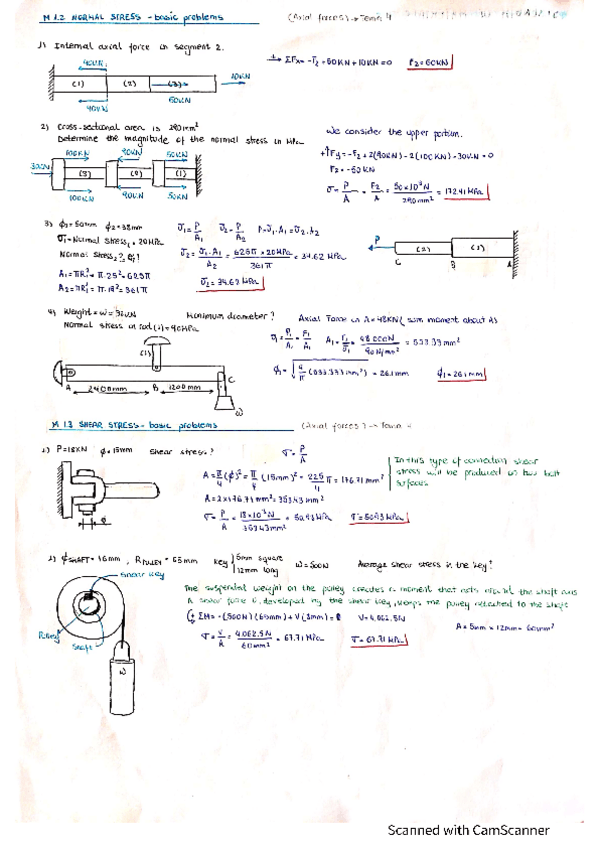 M 1.2 NORMAL STRESS - basic problems (Axial forces) → Tema 4
1) Internal axial force in segment 2.
→ ΣFx = -F2 - 50KN + 10KN = 0
40KN 10KN
(1) (2) (3)
40KN 50KN
2) Cross-sectional area is 290mm²
Determine the magnitude of the normal stress in MPa
We consider the upper portion.
100KN 90KN 50KN
(3) (2) (1)
100KN 90KN 50KN
+↑Fy = -F2 + 2(90KN) - 2(100KN) - 30KN = 0
F2 = -50KN
σ = P/A = F2/A = 50×10³N/290mm² = 172.41MPa
3) ϕ1 = 50mm ϕ2 = 38mm
σ1 = P/A1 σ2 = P/A2 P = σ1·A1 = σ2·A2
σ1 = Normal Stress1 = 20MPa
Normal Stress2?
σ2 = σ1·A1/A2 = 625π × 20MPa/361π = 34.62 MPa
A1 = πR² = π·25² = 625π
A2 = πR² = π·19² = 361π
σ2 = 34.62 MPa
P (2) (1)
C B A
4) Weight = W = 32KN Minimum diameter?
Normal stress in rod (1) = 90MPa
Axial Force in A = 48KN ( sum moment about A)
(1)
A 2400mm B 1200mm C
W
M 1.3 SHEAR STRESS - basic problems (Axial forces) → Tema 4
1) P = 18KN ϕ = 15mm Shear stress?
σ = P/A
A = π/4 (ϕ)² = π/4 (15mm)² = 225/4 π = 176.71mm²
In this type of connection shear
stress will be produced on two bolt
surfaces
A = 2×176.71mm² = 353.43mm²
σ = P/A = 18×10³N/353.43mm² = 50.93MPa
2) ϕSHAFT = 16mm, RPULLEY = 65mm key 5mm square W = 500N Average shear stress in the key?
12mm long
Shear key
Pulley
Shaft
W
The suspended weight on the pulley creates a moment that acts around the shaft axis
A shear force V, developed by the shear key, keeps the pulley attached to the shaft
ΣM = -(500N)(65mm) + V(8mm) = 0 V = 4,062.5N
A = 5mm × 12mm = 60mm²
σ = V/A = 4,062.5N/60mm² = 67.71MPa σ = 67.71 MPa
Scanned with CamScanner